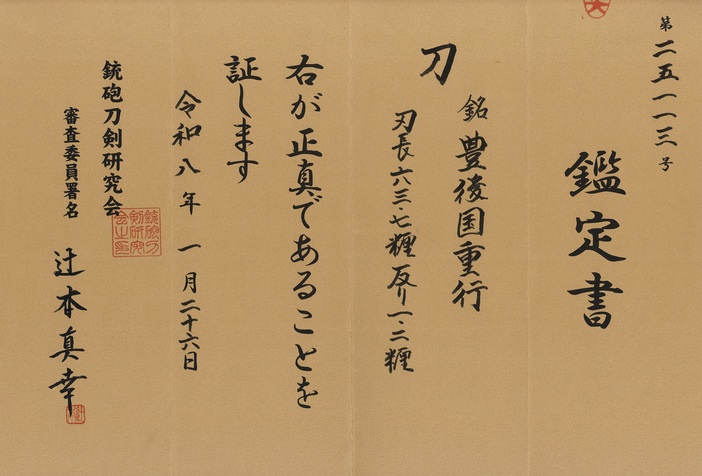 第二五一一三号
鑑定書
刀
銘 豊後国重行
刃長 六三・七糎 反り 一・二糎
右が正真であることを
証します
令和八年 一月二十六日
銃砲刀剣研究会
審査委員署名 辻本真幸